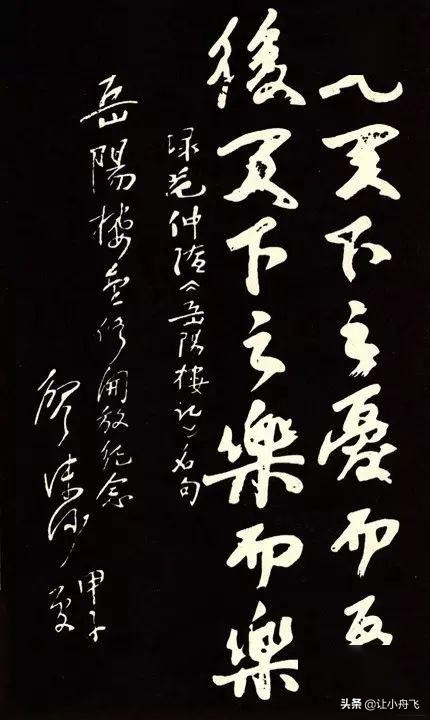 先天下之憂而憂
後天下之樂而樂
録范仲淹《岳阳樓记》名句
岳陽樓重修開放纪念
廖沫沙
甲子夏
头条 @让小舟飞